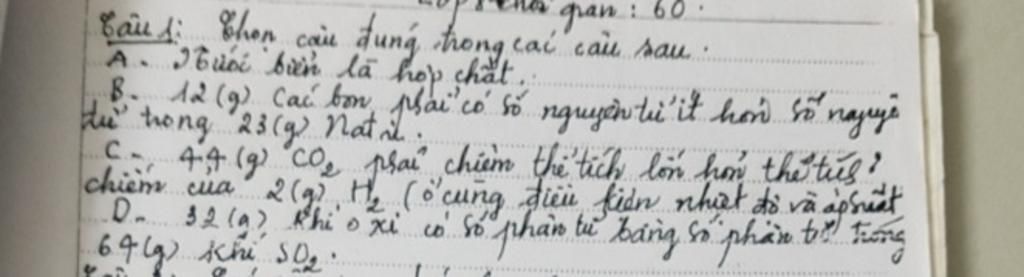 gian : 60.
Câu 1: Chọn câu đúng trong các câu sau.
A. Nước biển là hợp chất.
B. 12 (g) Các bon phải có số nguyên tử ít hơn số nguyên
tử trong 23 (g) Natri.
C. 44 (g) CO₂ phải chiếm thể tích lớn hơn thể tích
chiếm của 2 (g) H₂ (ở cùng điều kiện nhiệt độ và áp suất
D. 32 (g) khí oxi có số phân tử bằng số phân tử trong
64 (g) khí SO₂.